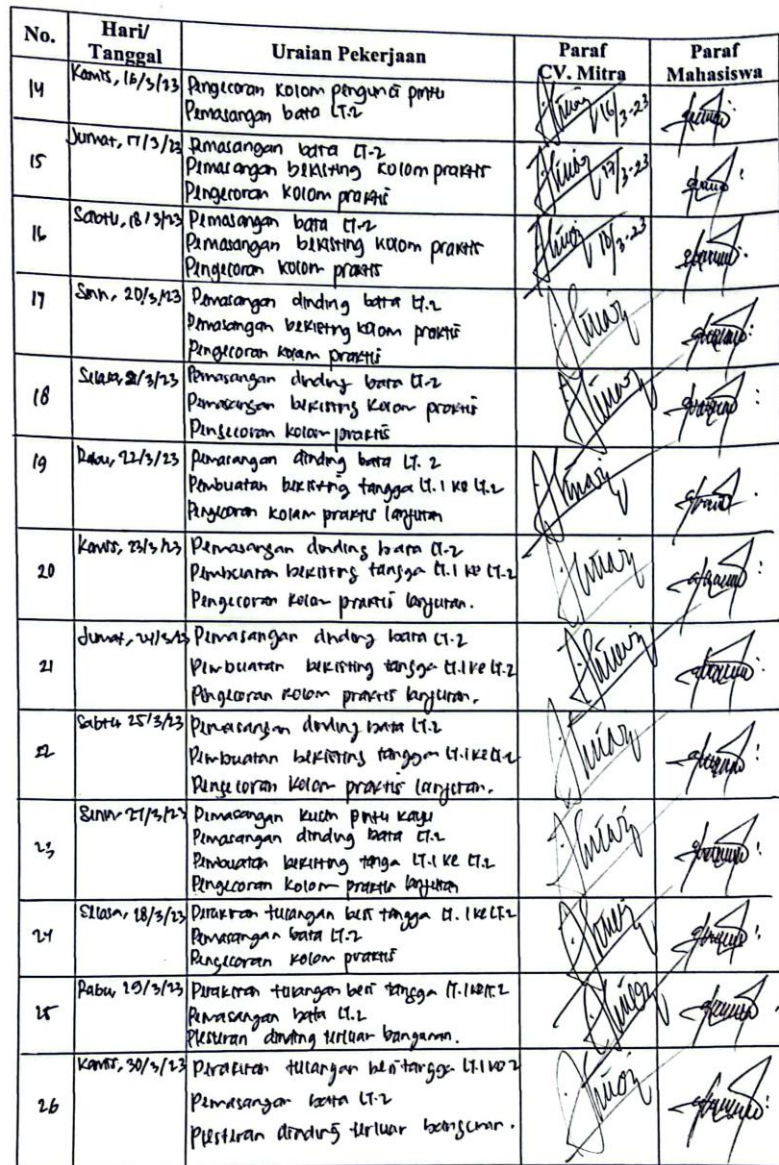 No. Hari/ Tanggal Uraian Pekerjaan Paraf CV. Mitra Paraf Mahasiswa
14 Kamis, 16/3/23 Pengecoran kolom pengunci pintu 16/3-23
Pemasangan bata LT.2
15 Jumat, 17/3/23 Pemasangan bata LT-2 17/3-23
Pemasangan bekisting kolom praktis
Pengecoran kolom praktis
16 Sabtu, 18/3/23 Pemasangan bata LT-2 18/3-23
Pemasangan bekisting kolom praktis
Pengecoran kolom praktis
17 Senin, 20/3/23 Pemasangan dinding bata LT.2
Pemasangan bekisting kolom praktis
Pengecoran kolam praktis
18 Selasa, 21/3/23 Pemasangan dinding bata LT-2
Pemasangan bekisting kolom praktis
Pengecoran kolom praktis
19 Rabu, 22/3/23 Pemasangan dinding bata LT. 2
Pembuatan bekisting tangga LT.1 ke LT.2
Pengecoran kolam praktis lanjutan
20 Kamis, 23/3/23 Pemasangan dinding bata LT-2
Pembuatan bekisting tangga LT.1 ke LT-2
Pengecoran kolom praktis lanjutan.
21 Jumat, 24/3/23 Pemasangan dinding bata LT-2
Pembuatan bekisting tangga LT.1 ke LT.2
Pengecoran kolom praktis lanjutan.
22 Sabtu 25/3/23 Pemasangan dinding bata LT.2
Pembuatan bekisting tangga LT.1 ke LT.2
Pengecoran kolom praktis lanjutan.
23 Senin 27/3/23 Pemasangan kusen pintu kayu
Pemasangan dinding bata LT.2
Pembuatan bekisting tanga LT.1 ke LT.2
Pengecoran kolom praktis lanjutan
24 Selasa, 28/3/23 Perakitan tulangan besi tangga LT. 1 ke LT.2
Pemasangan bata LT.2
Pengecoran kolom praktis
25 Rabu, 29/3/23 Perakitan tulangan besi tangga LT.1 ke LT.2
Pemasangan bata LT.2
Plesteran dinding terluar bangunan.
26 Kamis, 30/3/23 Perakitan tulangan besi tangga LT.1 ke 2
Pemasangan bata LT-2
Plesteran dinding terluar bangunan.